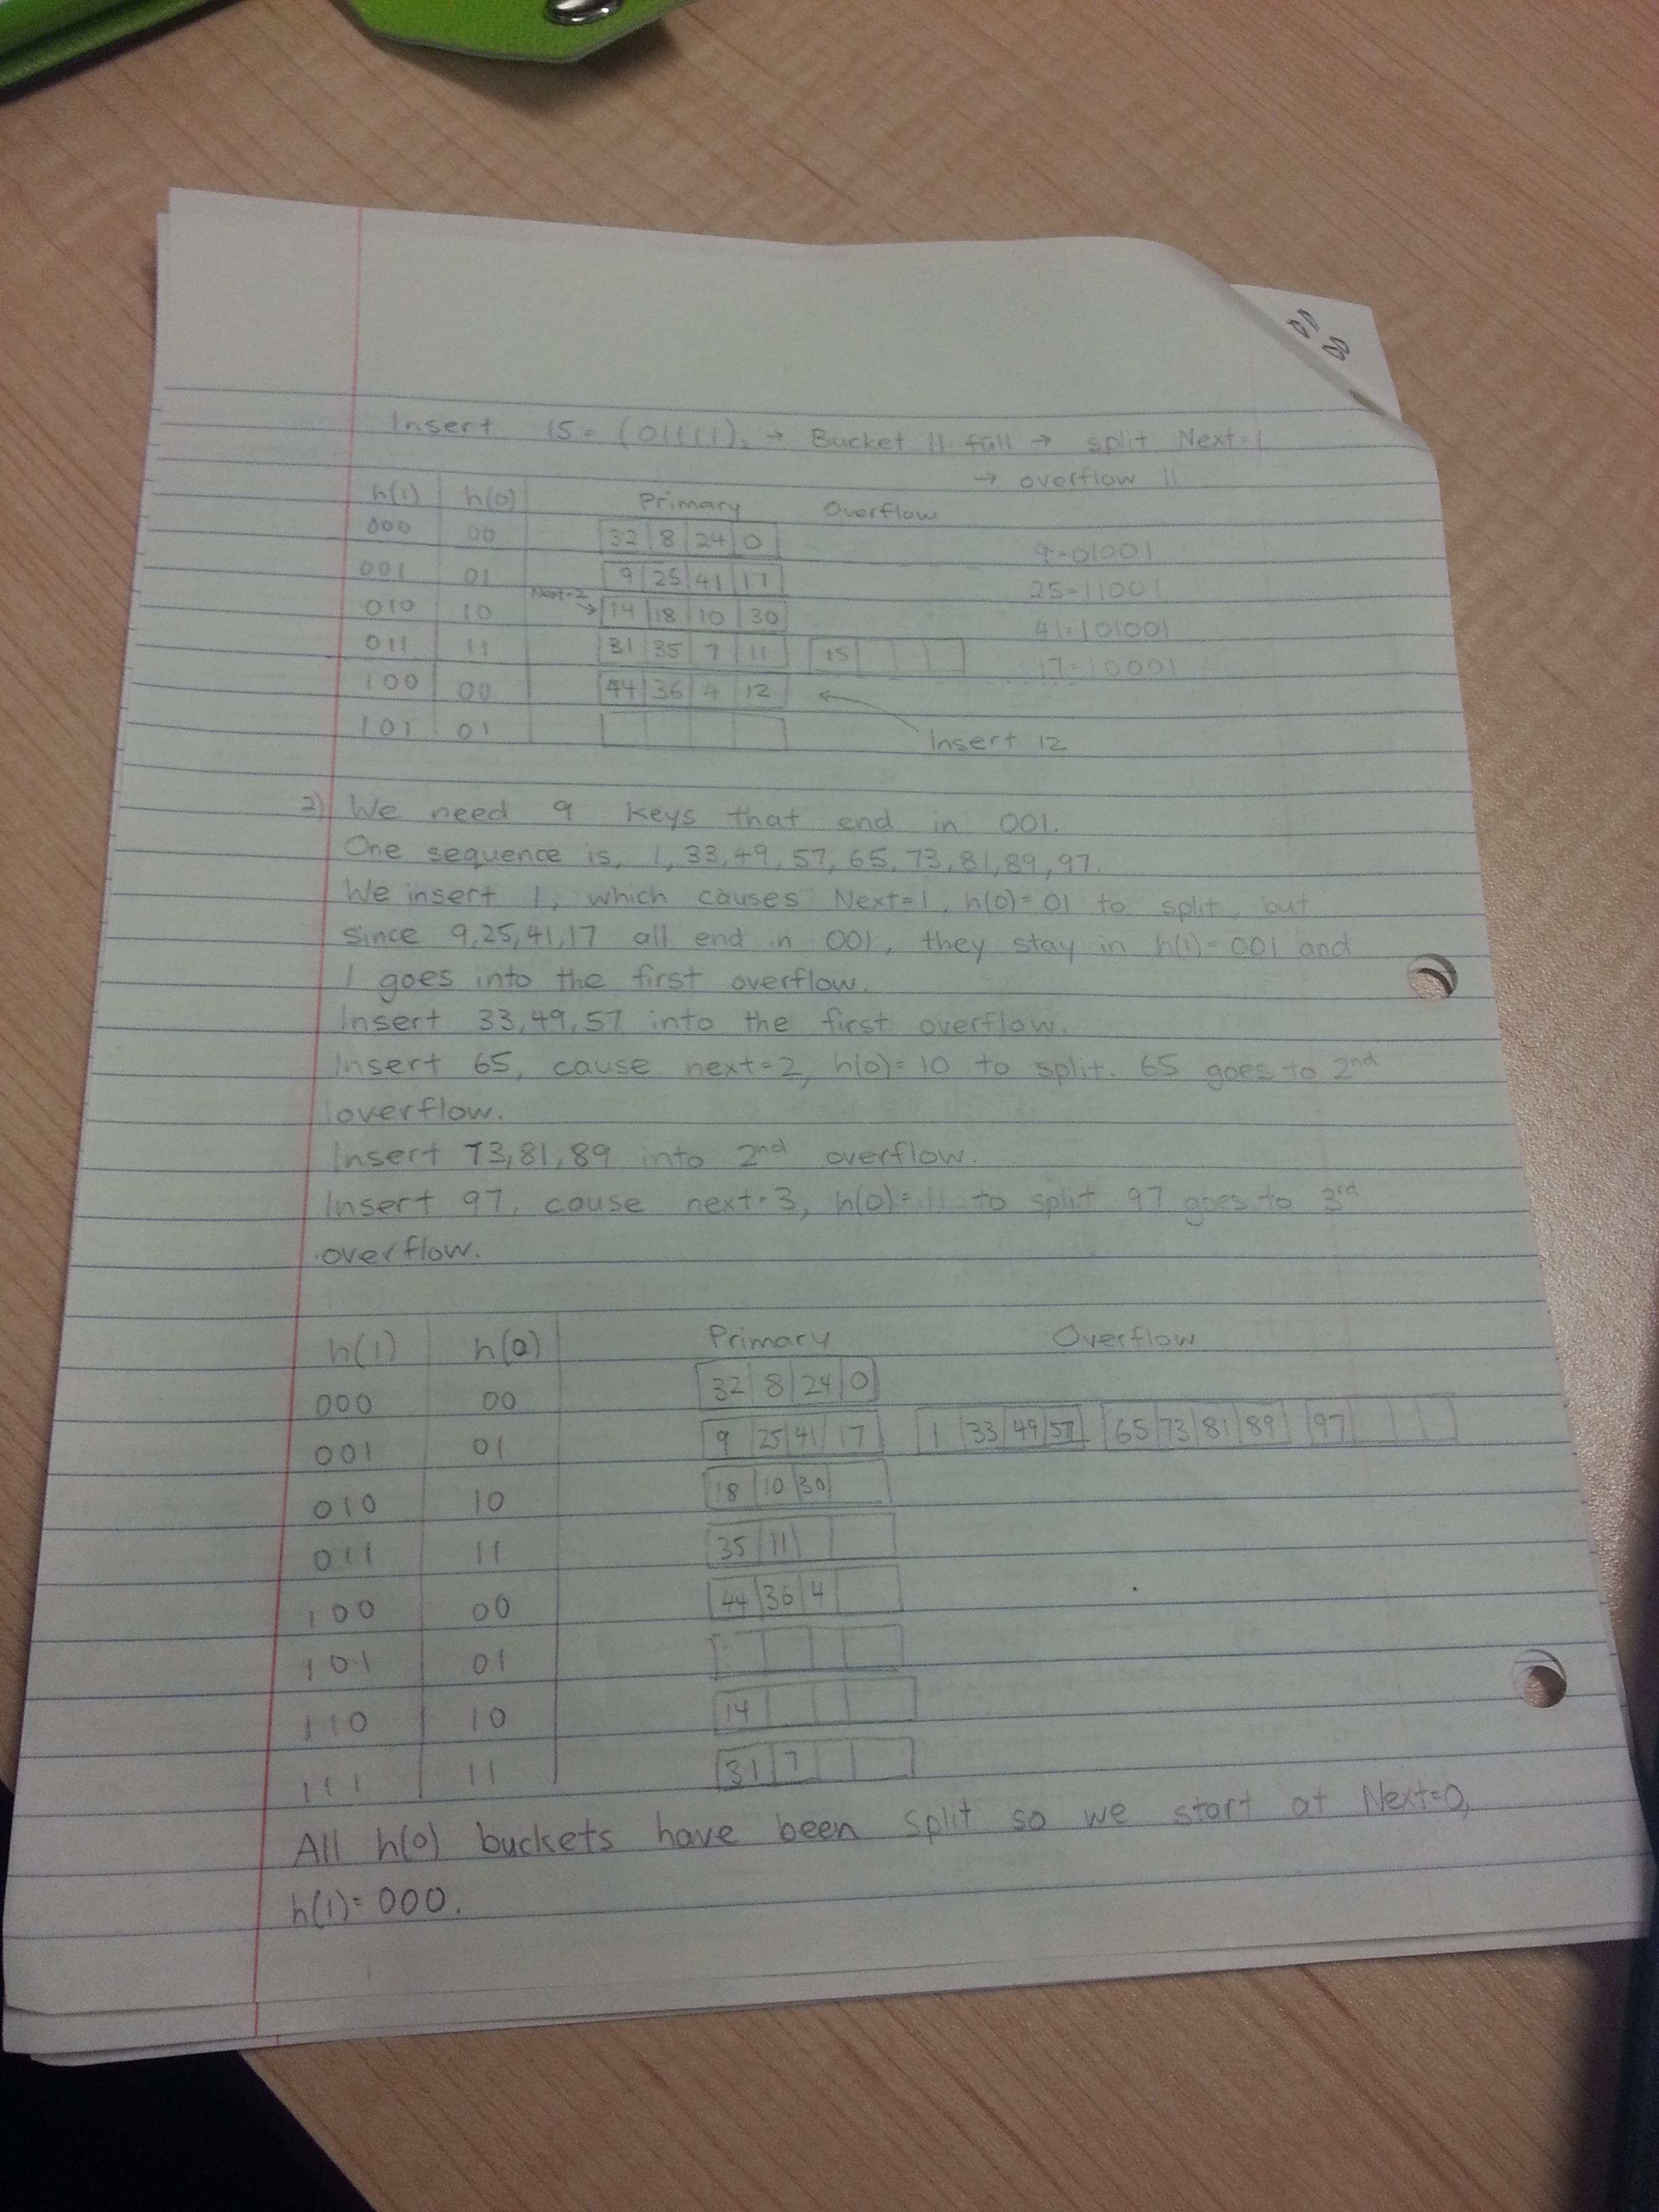 Insert 15 = (01111)₂ → Bucket 11 full → split Next=1
→ overflow 11
h(1) h(0) Primary Overflow
000 00 32 8 24 0 9=01001
001 01 9 25 41 17 25=11001
010 10 Next=2 → 14 18 10 30 41=101001
011 11 31 35 7 11 15 17=10001
100 00 44 36 4 12 ←
101 01 Insert 12
2) We need 9 keys that end in 001.
One sequence is, 1,33,49,57,65,73,81,89,97.
We insert 1, which causes Next=1, h(0)=01 to split, but
since 9,25,41,17 all end in 001, they stay in h(1)=001 and
1 goes into the first overflow.
Insert 33,49,57 into the first overflow.
Insert 65, cause next=2, h(0)=10 to split. 65 goes to 2nd
overflow.
Insert 73,81,89 into 2nd overflow.
Insert 97, cause next=3, h(0)=11 to split 97 goes to 3rd
overflow.
h(1) h(0) Primary Overflow
000 00 32 8 24 0
001 01 9 25 41 17 1 33 49 57 65 73 81 89 97
010 10 18 10 30
011 11 35 11
100 00 44 36 4
101 01
110 10 14
111 11 31 7
All h(0) buckets have been split so we start at Next=0,
h(1)=000.